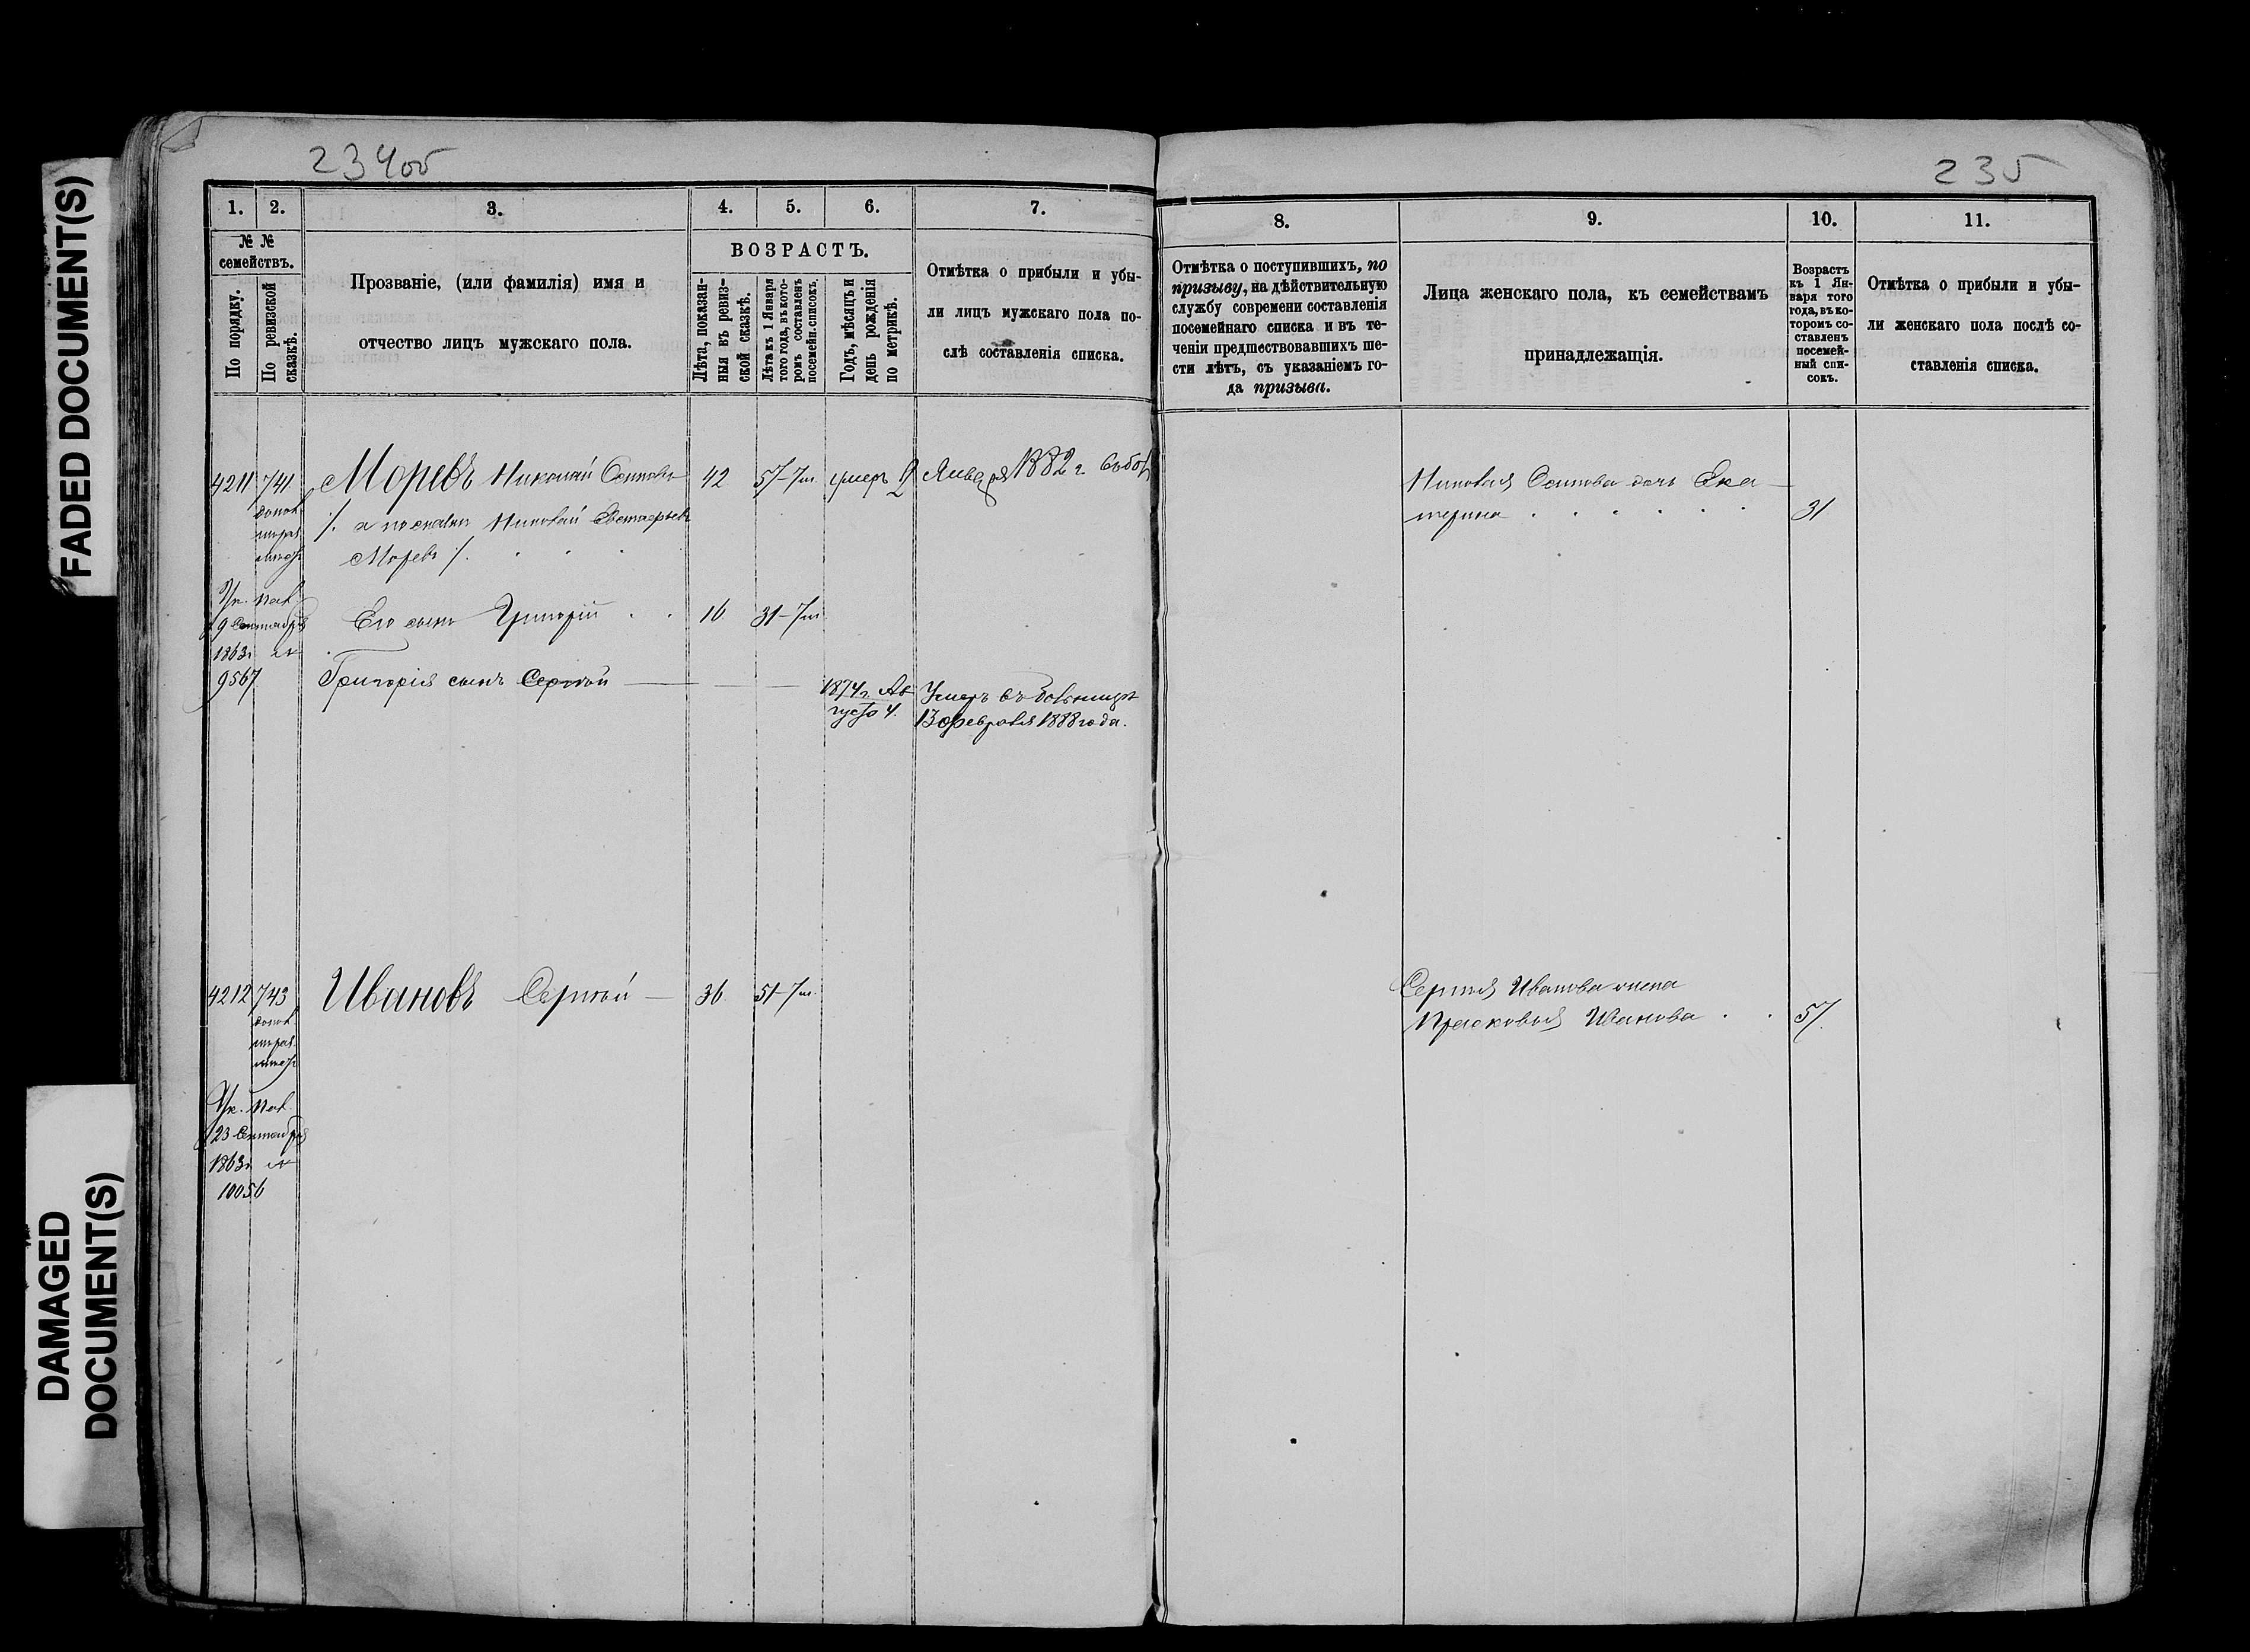 FADED DOCUMENT(S)
DAMAGED
DOCUMENT(S)
234об
1. 2. 3. 4. 5. 6. 7.
№ №
семействъ.
По порядку.
По ревизской
сказкѣ.
Прозваніе, (или фамилія) имя и
отчество лицъ мужскаго пола.
ВОЗРАСТЪ.
Лѣта, показан-
ныя въ ревиз-
ской сказкѣ.
Лѣта къ 1 Января
того года, въ кото-
ромъ составленъ
посемейн. списокъ.
Годъ, мѣсяцъ и
день рожденія
по метрикѣ.
Отмѣтка о прибыли и убы-
ли лицъ мужскаго пола по-
слѣ составленія списка.
4211 741 Моревъ Николай 42 57-7м. умеръ 9 Января 1882 г.
допол.
/. а по Николай Евстафьевъ
Моревъ /.
Ук. Пал.
9 Сентября Его сынъ Григорій 16 31-7м
1863г №
9567 Григорія сынъ Сергѣй 1874г. Ав-
густа 4. Умеръ въ больницѣ
13 февраля 1888 года.
4212 743 Ивановъ Сергѣй 36 51-7м.
допол.
Ук. Пал.
23 Сентября
1863г №
10056
235
8. 9. 10. 11.
Отмѣтка о поступившихъ, по
призыву, на дѣйствительную
службу современи составленія
посемейнаго списка и въ те-
ченіи предшествовавшихъ ше-
сти лѣтъ, съ указаніемъ го-
да призыва.
Лица женскаго пола, къ семействамъ
принадлежащія.
Возрастъ
къ 1 Ян-
варя того
года, въ ко-
торомъ со-
ставленъ
посемей-
ный спи-
сокъ.
Отмѣтка о прибыли и убы-
ли женскаго пола послѣ со-
ставленія списка.
Николая дочь Ека-
терина 31
Сергѣя Иванова жена
Прасковья Иванова 57